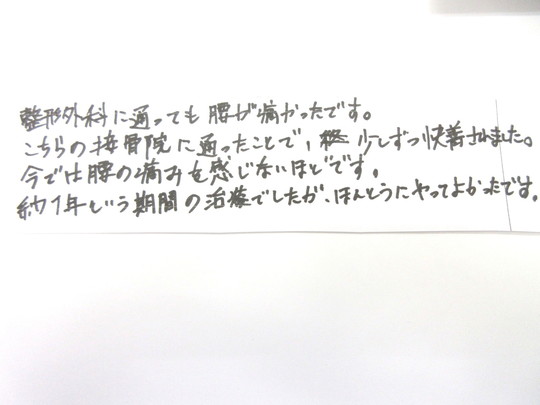 整形外科に通っても腰が痛かったです。
こちらの接骨院に通ったことで、少しずつ快善されました。
今では腰の痛みを感じないほどです。
約1年という期間の治療でしたが、ほんとうにやってよかったです。